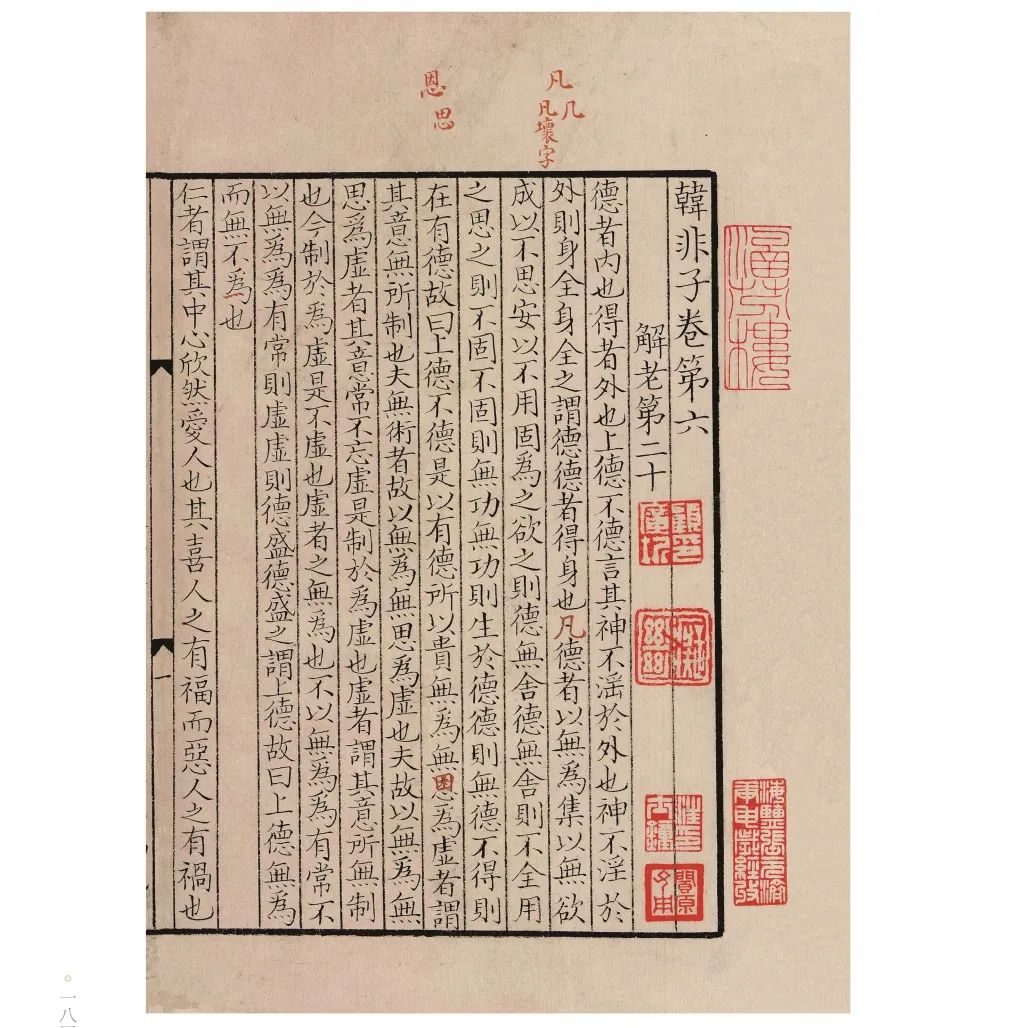 凡几
凡壞字
恩
思
涵芬樓
海鹽張元濟
庚申歲經收
韓非子卷第六
解老第二十
顧印
廣圻
汪印
士鐘
閬原
父用
德者内也得者外也上德不德言其神不滛於外也神不淫於
外則身全身全之謂德德者得身也凡德者以無爲集以無欲
成以不思安以不用固爲之欲之則德無舍德無舍則不全用
之思之則不固不固則無功無功則生於德德則無德不得則
在有德故曰上德不德是以有德所以貴無爲無恩爲虛者謂
其意無所制也夫無術者故以無爲無思爲虛也夫故以無爲無
思爲虛者其意常不忘虛是制於爲虛也虛者謂其意所無制
也今制於爲虛是不虛也虛者之無爲也不以無爲爲有常不
以無爲爲有常則虛虛則德盛德盛之謂上德故曰上德無爲
而無不爲也
仁者謂其中心欣然愛人也其喜人之有福而惡人之有禍也
一
一八